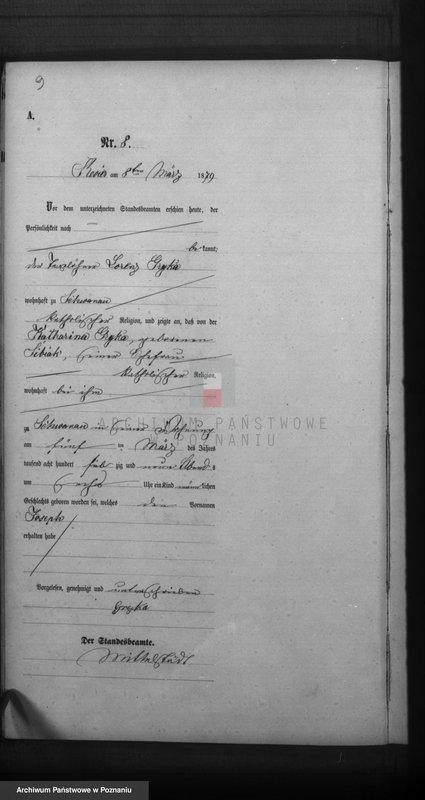 9
A.
Nr. 8.
am 8ten März 1879
Vor dem unterzeichneten Standesbeamten erschien heute, der
Persönlichkeit nach
bekannt,
der Lorenz Gryka
wohnhaft zu Schwanau
katholischer Religion, und zeigte an, daß von der
Katharina Gryka, geborenen
seiner Ehefrau
katholischer Religion,
wohnhaft bei ihm
ARCHIWUM PAŃSTWOWE
W POZNANIU
zu Schwanau in seiner Wohnung
am fünf ten März des Jahres
tausend acht hundert sieb zig und neun Abend s
um sechs Uhr ein Kind männlichen
Geschlechts geboren worden sei, welches den Vornamen
Joseph
erhalten habe
Vorgelesen, genehmigt und unterschrieben
Gryka
Der Standesbeamte.
Mittelstädt
Archiwum Państwowe w Poznaniu